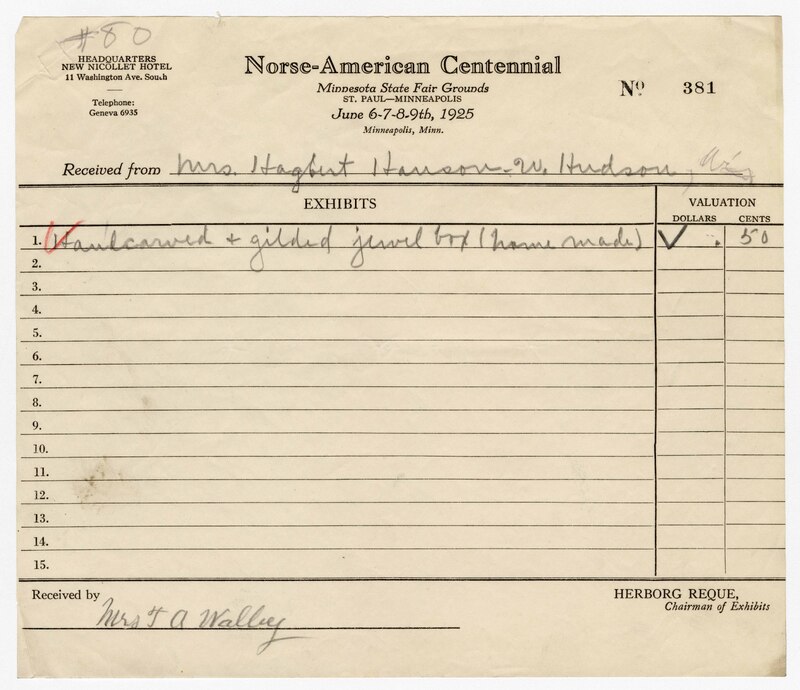 #80
HEADQUARTERS
NEW NICOLLET HOTEL
11 Washington Ave. South
Telephone:
Geneva 6935
Norse-American Centennial
Minnesota State Fair Grounds
ST. PAUL—MINNEAPOLIS
June 6-7-8-9th, 1925
Minneapolis, Minn.
Nº 381
Received from Mrs. Hagbert Hanson - W. Hudson, Wis
EXHIBITS
VALUATION
DOLLARS CENTS
1. Handcarved + gilded jewel box (home made) . 50
2.
3.
4.
5.
6.
7.
8.
9.
10.
11.
12.
13.
14.
15.
Received by Mrs T A Walby
HERBORG REQUE,
Chairman of Exhibits